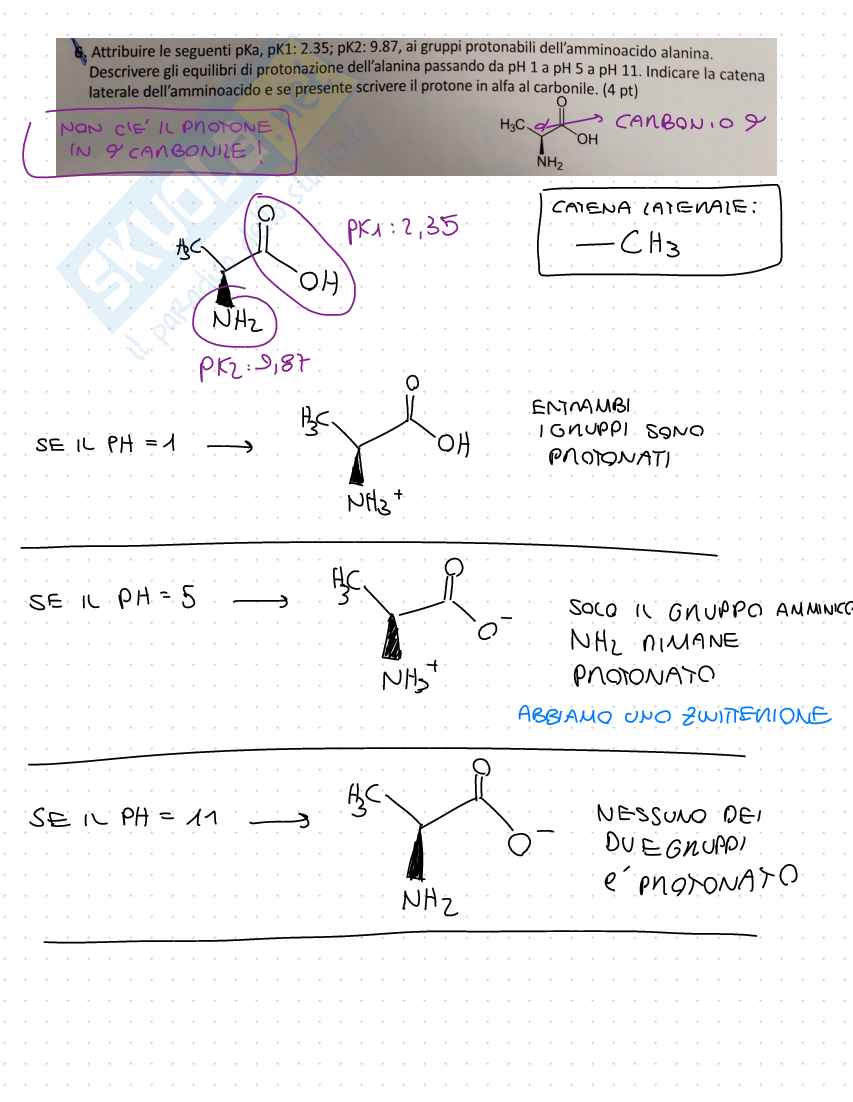 6. Attribuire le seguenti pKa, pK1: 2.35; pK2: 9.87, ai gruppi protonabili dell'amminoacido alanina.
Descrivere gli equilibri di protonazione dell'alanina passando da pH 1 a pH 5 a pH 11. Indicare la catena
laterale dell'amminoacido e se presente scrivere il protone in alfa al carbonile. (4 pt)
NON C'E' IL PROTONE
IN α CARBONILE!
O
H₃C
α
OH
NH₂
CARBONIO α
SKUOLA.net
CATENA LATERALE:
—CH₃
O
H₃C
OH
NH₂
PK1: 2,35
PK2: 9,87
SE IL PH = 1
O
H₃C
OH
NH₃⁺
ENTRAMBI
I GRUPPI SONO
PROTONATI
SE IL PH = 5
O
H₃C
O⁻
NH₃⁺
SOLO IL GRUPPO AMMINICO
NH₂ RIMANE
PROTONATO
ABBIAMO UNO ZWITTERIONE
SE IL PH = 11
O
H₃C
O⁻
NH₂
NESSUNO DEI
DUE GRUPPI
E' PROTONATO